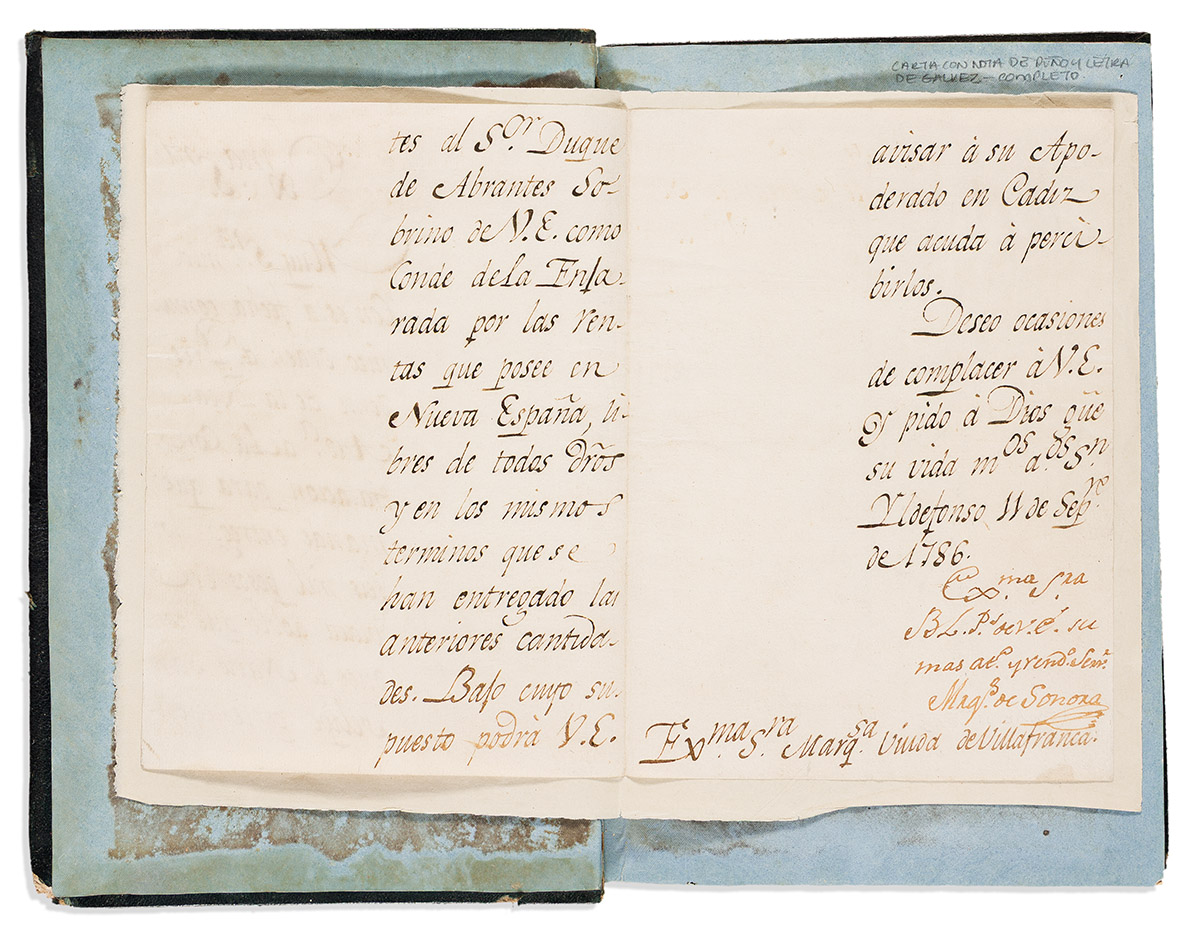 CARTA CON NOTA DE PUÑO Y LETRA
DE GALVEZ – COMPLETO.
tes al S.or Duque
de Abrantes So-
brino de V.E. como
Conde de la Enja-
rada por las ren-
tas que posee en
Nueva España, li-
bres de todos dr̃os
y en los mismos
terminos que se
han entregado las
anteriores cantida-
des. Bajo cuyo su-
puesto podrà V.E.
avisar à su Apo-
derado en Cadiz
que acuda à perci-
birlos.
Deseo ocasiones
de complacer à V.E.
Y pido à Dios gũe
su vida m.os a.os S.n
Yldefonso 11 de Sep.re
de 1786.
Ex.ma S.ra
B L. P.s de V.E. su
mas at.o y rend.o Serv.r
Marq.s de Sonora
Ex.ma S.ra Marq.sa Viuda de Villafranca.